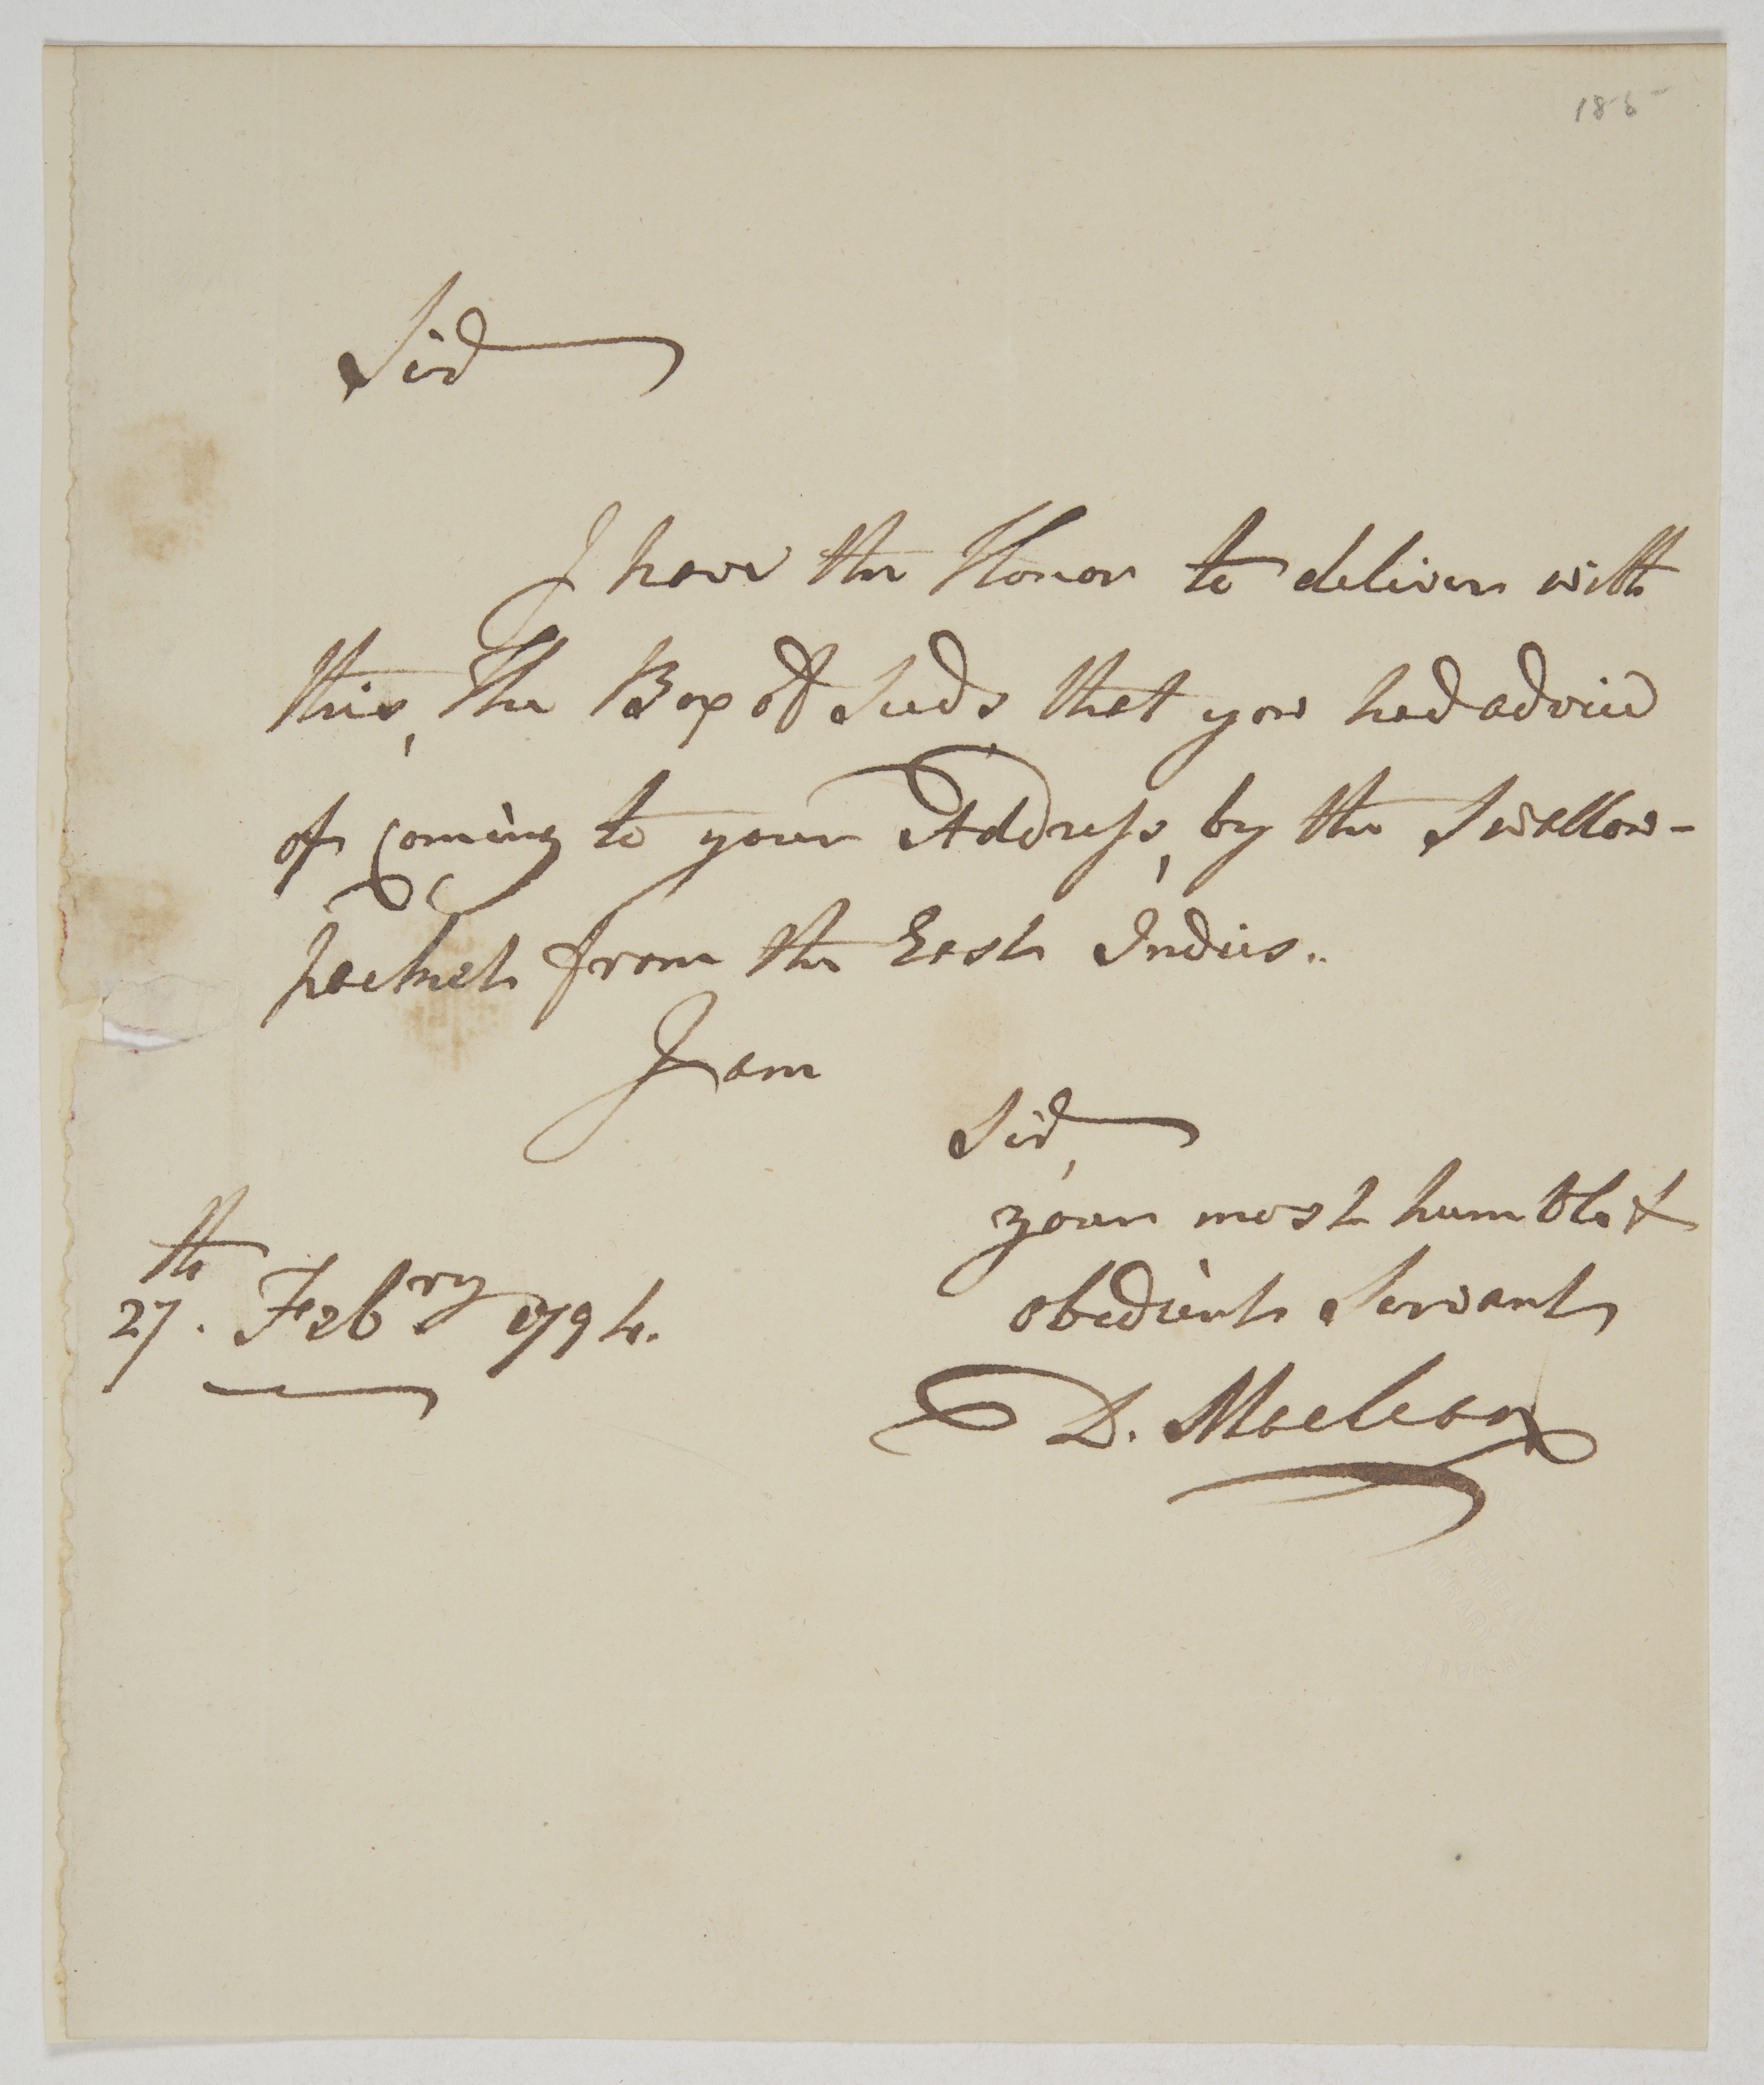 185
Sir
I have the Honor to deliver with
this, The Box of Seeds that you had advice
of Coming to your Address, by the Swallow-
packet from the East Indies..
I am
Sir,
your most humble &
obedient Servant
27th. Febry 1794.
D. Maclean